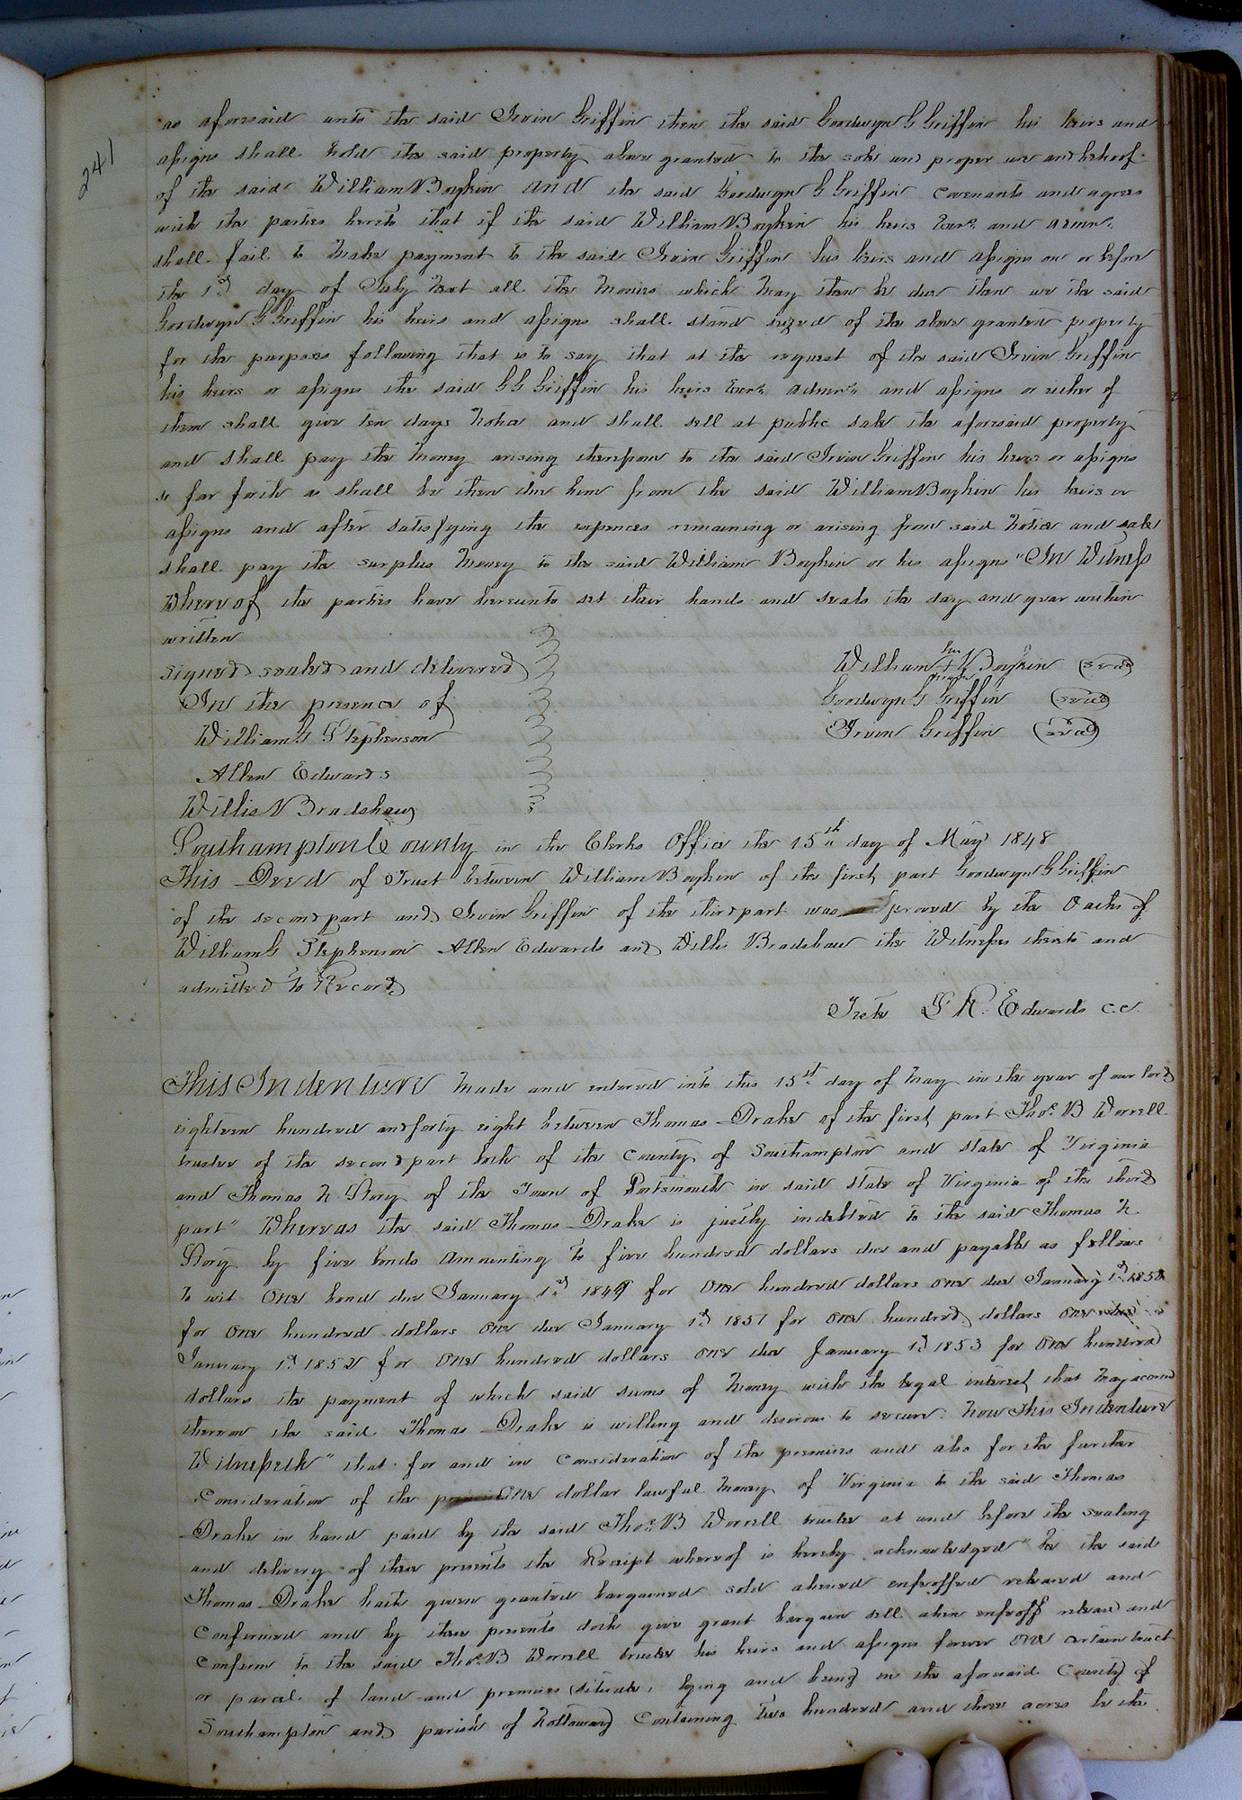 241
as aforesaid unto the said Irvin Griffin then the said Goodwyn G Griffin his heirs and
assigns shall hold the said property above granted to the sole and proper use and behoof
of the said William Boykin and the said Goodwyn G Griffin covenants and agrees
with the parties hereto that if the said William Boykin his heirs Exrs. and admr.
shall fail to make payment to the said Irvin Griffin his heirs and assigns on or before
the 1st day of July next all the monies which may then be due then we the said
Goodwyn G Griffin his heirs and assigns shall stand seized of the above granted property
for the purposes following that is to say that at the request of the said Irvin Griffin
his heirs or assigns the said G G Griffin his heirs Exrs. admrs. and assigns or either of
them shall give ten days notice and shall sell at public sale the aforesaid property
and shall pay the money arising therefrom to the said Irvin Griffin his heirs or assigns
so far forth as shall be then due him from the said William Boykin his heirs or
assigns and after satisfying the expences remaining or arising from said notice and sale
shall pay the surplus money to the said William Boykin or his assigns "In Witness
Whereof the parties have hereunto set their hands and seals the day and year within
written
signed sealed and delivered
In the presence of
William G Stephenson
Allen Edwards
Willis N Bradshaw
his
William + Boykin (seal)
mark
Goodwyn G Griffin (seal)
Irvin Griffin (seal)
Southampton County in the Clerks Office the 15th day of May 1848
This Deed of Trust between William Boykin of the first part Goodwyn G Griffin
of the second part and Irvin Griffin of the third part was proved by the Oaths of
William G Stephenson Allen Edwards and Willis Bradshaw the Witnesses thereto and
admitted to Record
Teste L R. Edwards C.C.
This Indenture made and entered into this 15th day of May in the year of our Lord
eighteen hundred and forty eight between Thomas Drake of the first part Thos. B Worrell
trustee of the second part both of the County of Southampton and state of Virginia
and Thomas N Story of the Town of Portsmouth in said state of Virginia of the third
part" Whereas the said Thomas Drake is justly indebted to the said Thomas N
Story by five bonds amounting to five hundred dollars due and payable as follows
to wit One bond due January 1st 1849 for One hundred dollars one due January 1st 1850
for one hundred dollars one due January 1st 1851 for one hundred dollars one
January 1st 1852 for one hundred dollars one due January 1st 1853 for one hundred
dollars the payment of which said sums of money with the legal interest that may accrue
thereon the said Thomas Drake is willing and desirous to secure. Now This Indenture
Witnesseth" that for and in consideration of the premises and also for the further
Consideration of the One dollar lawful money of Virginia to the said Thomas
Drake in hand paid by the said Thos. B Worrell trustee at and before the sealing
and delivery of these presents the Receipt whereof is hereby acknowledged" he the said
Thomas Drake hath given granted bargained sold aliened enfeoffed released and
Confirmed and by these presents doth give grant bargain sell alien enfeoff release and
Confirm to the said Thos. B Worrell trustee his heirs and assigns forever one certain tract
or parcel of land and premises situate, lying and being in the aforesaid County of
Southampton and parish of Nottoway Containing two hundred and three acres be the